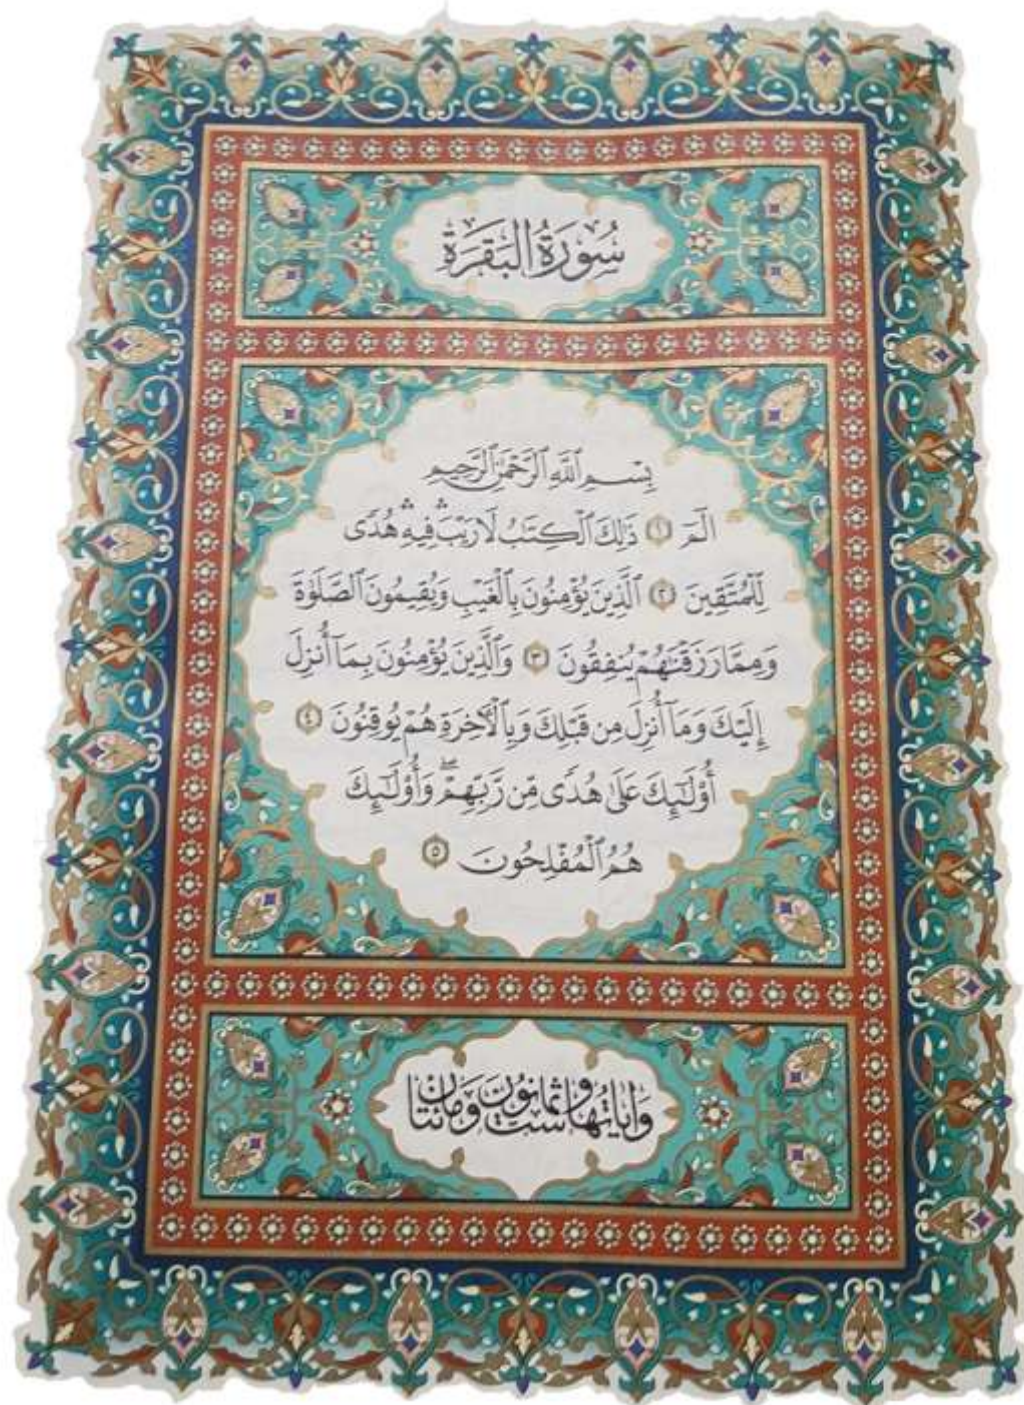 سُورَةُ الْبَقَرَةِ
بِسْمِ ٱللَّهِ ٱلرَّحْمَٰنِ ٱلرَّحِيمِ
الٓمٓ ١ ذَٰلِكَ ٱلْكِتَٰبُ لَا رَيْبَ ۛ فِيهِ ۛ هُدًى
لِّلْمُتَّقِينَ ٢ ٱلَّذِينَ يُؤْمِنُونَ بِٱلْغَيْبِ وَيُقِيمُونَ ٱلصَّلَوٰةَ
وَمِمَّا رَزَقْنَٰهُمْ يُنفِقُونَ ٣ وَٱلَّذِينَ يُؤْمِنُونَ بِمَآ أُنزِلَ
إِلَيْكَ وَمَآ أُنزِلَ مِن قَبْلِكَ وَبِٱلْءَاخِرَةِ هُمْ يُوقِنُونَ ٤
أُو۟لَٰٓئِكَ عَلَىٰ هُدًى مِّن رَّبِّهِمْ ۖ وَأُو۟لَٰٓئِكَ
هُمُ ٱلْمُفْلِحُونَ ٥
وَآيَاتُهَا سِتٌّ وَثَمَانُونَ وَمِائَتَانِ